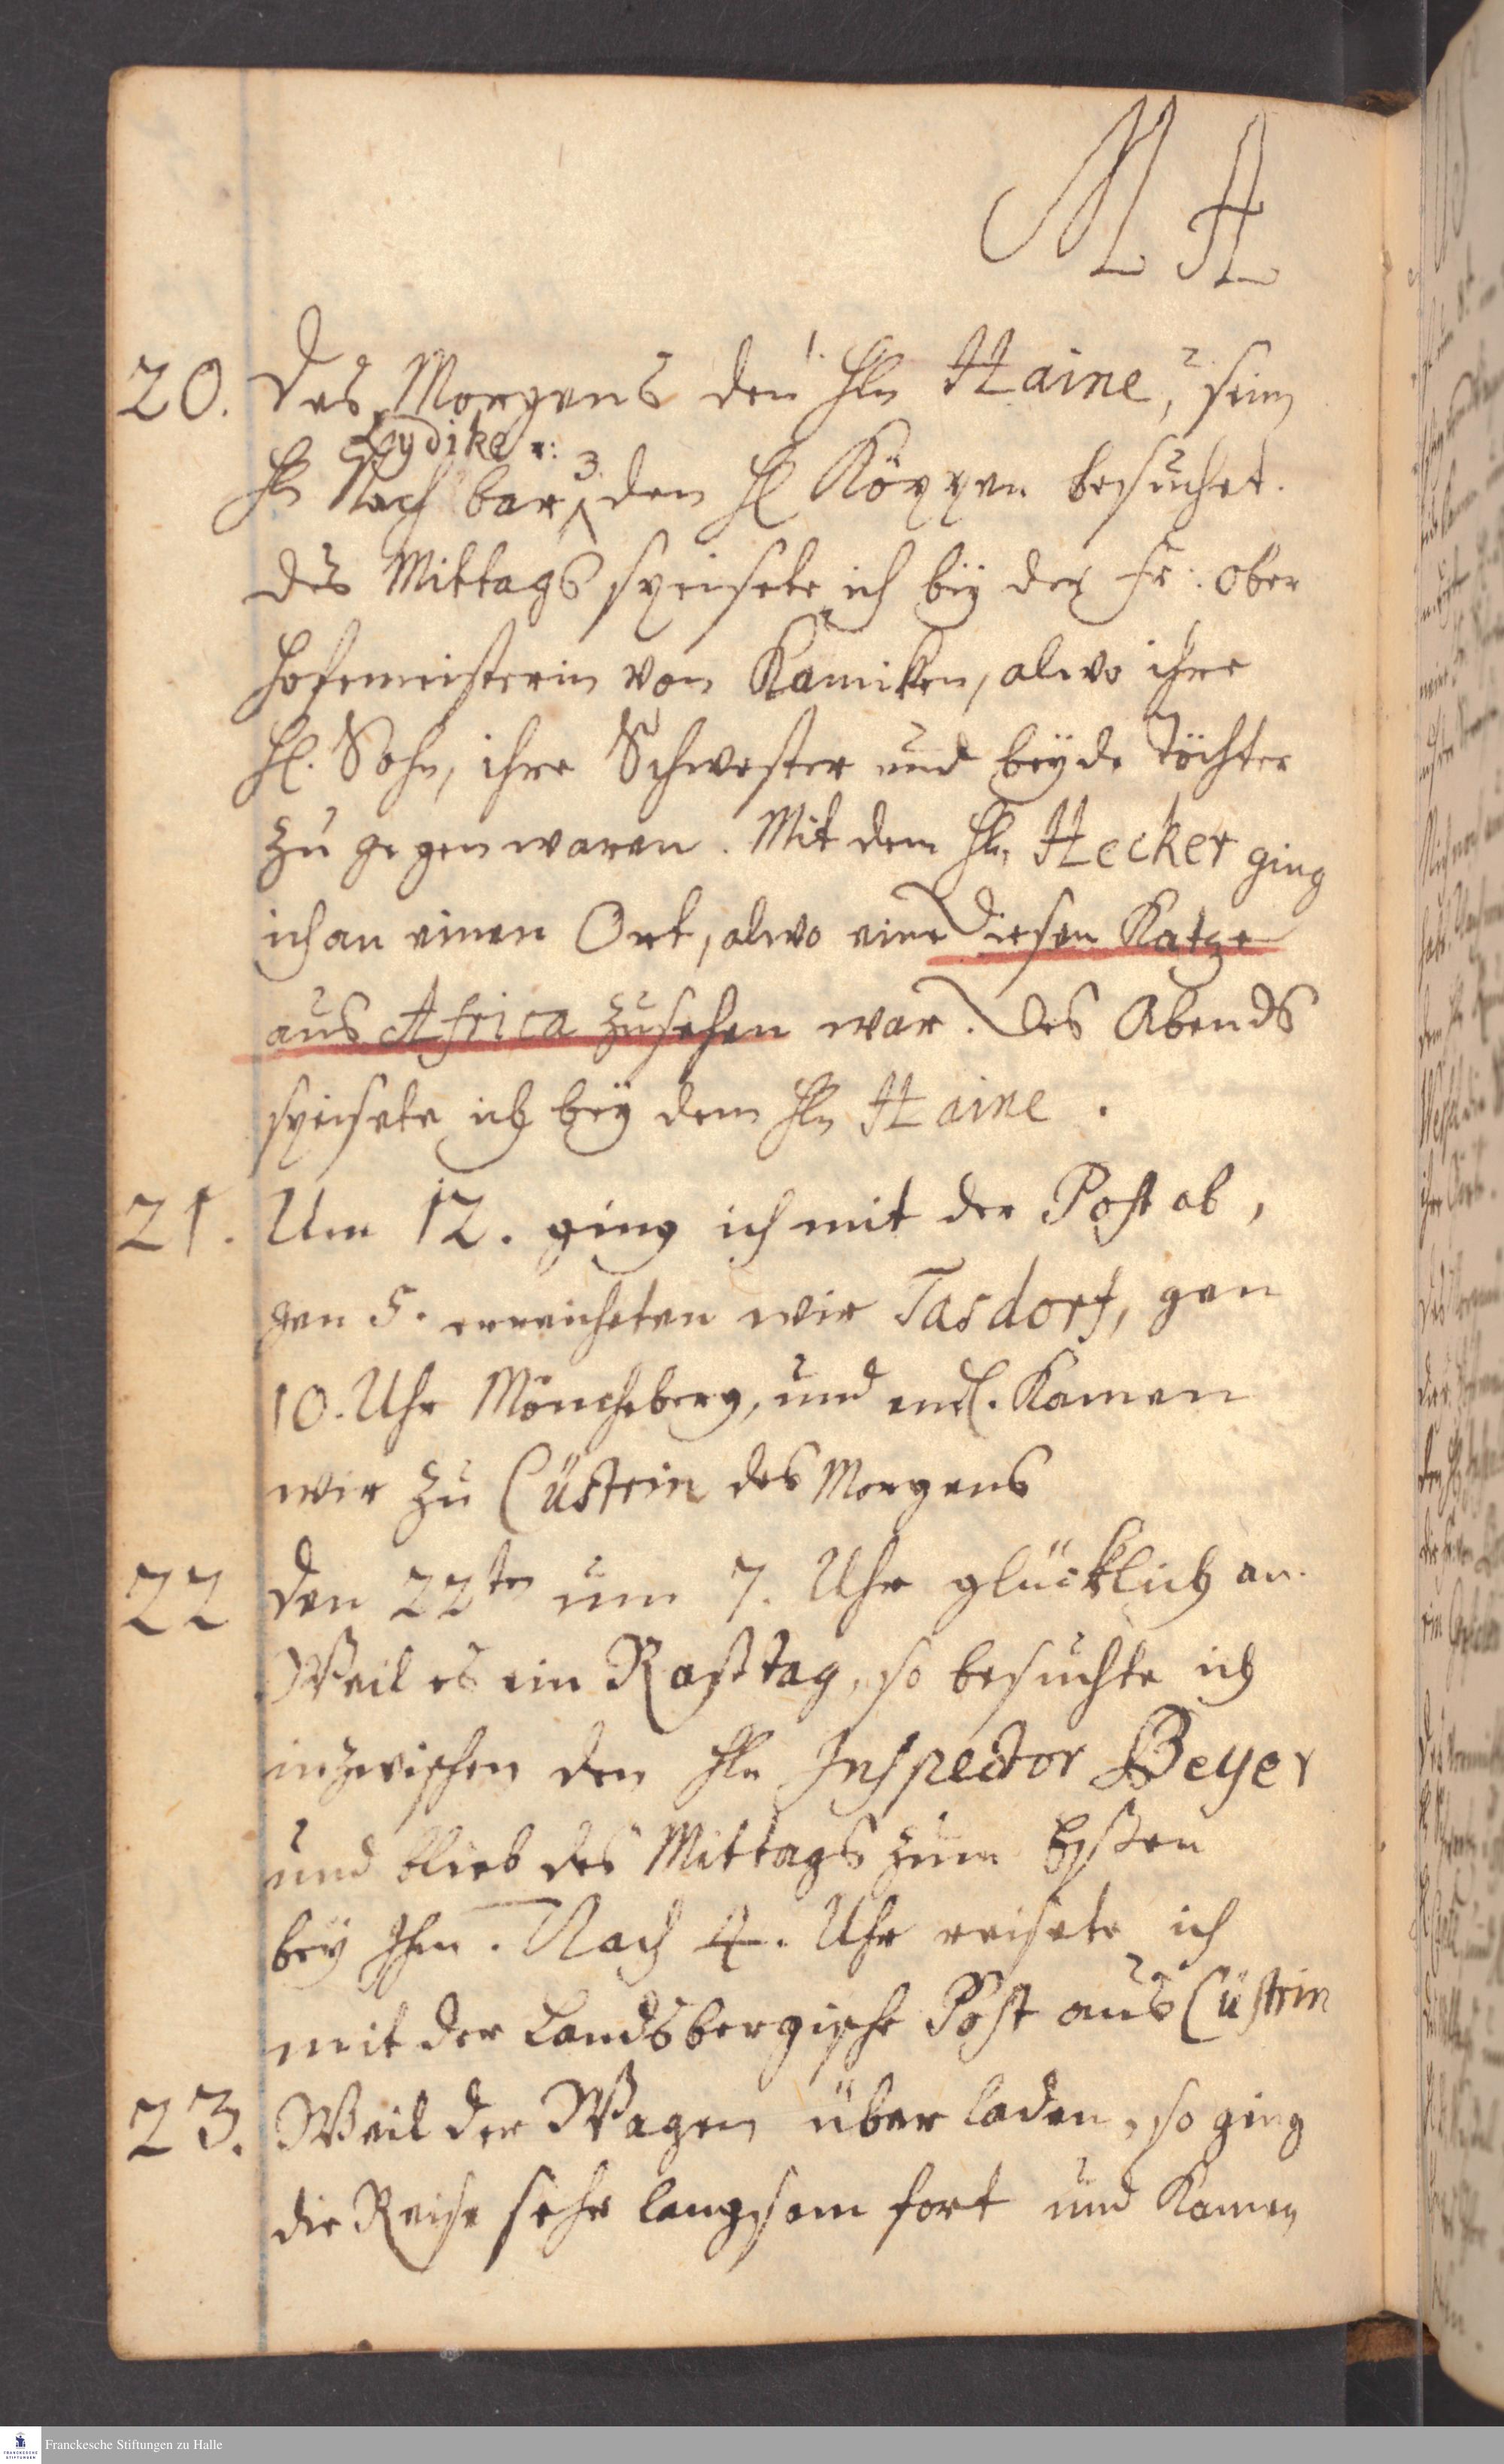 MA
20. Des Morgens den 1. Hln Haine, 2. sein
Lydike
Hn Nachbar, 3. den Hl Köppen besuchet.
des Mittags speisete ich bey der Fr: Ober
Hofemeisterin von Kamiken, alwo ihre
Hl. Sohn, ihre Schwester und beyde Töchter
zu gegen waren. Mit dem Hln Hecker ging
ich an einen Ort, alwo eine Diesen Katze
aus Africa zusehen war. Des Abends
speisete ich bey dem Hln Haine.
21. Um 12. ging ich mit der Post ab,
gen 5. erreicheten wir Tasdorf, gen
10. Uhr Möncheberg, und endl. Kamen
wir zu Cüstrin des Morgens
22 den 22ten um 7. Uhr glücklich an.
Weil es ein Rasttag, so besuchte ich
inzwischen den Hln Inspector Beyer
und blieb des Mittags zum Essen
bey Ihm. Nach 4. Uhr reisete ich
mit der Landsbergische Post aus Cüstrin
23. Weil der Wagen über laden, so ging
die Reise sehr langsam fort und Kamen
Franckesche Stiftungen zu Halle
FRANCKESCHE STIFTUNGEN